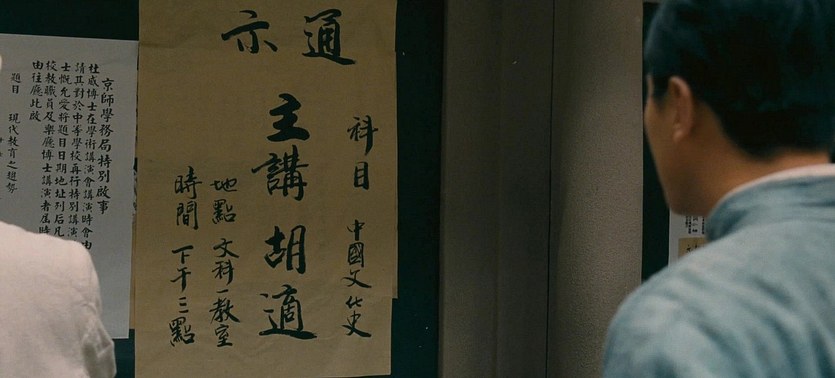 通示
科目 中國文化史
主講 胡適
地點 文科一教室
時間 下午三點
京師學務局特別啟事
杜威博士在學術講演會講演時會由
請其對於中等學校再行特別講演
士慨允爰將題目日期地址列后凡
校教職員及樂聽博士講演者屆時
由往聽此啟
題目 現代教育之趨勢